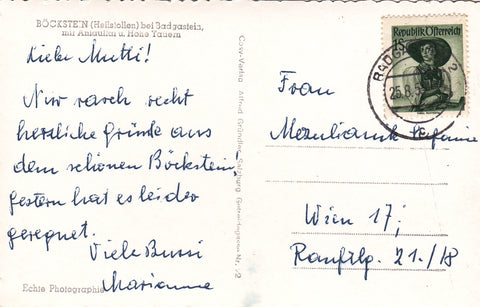 BÖCKSTEIN (Heilstollen) bei Badgastein,
mit Ankogel u. Hohe Tauern
Liebe Mutti!
Nur rasch recht
herzliche Grüße aus
dem schönen Böckstein!
gestern hat es leider
geregnet.
Viele Bussi
Marianne
Echte Photographie
Cosy-Verlag Alfred Gründler, Salzburg
Republik Österreich
1S
BADG
25.8.
Frau
Wien 17;
21./18